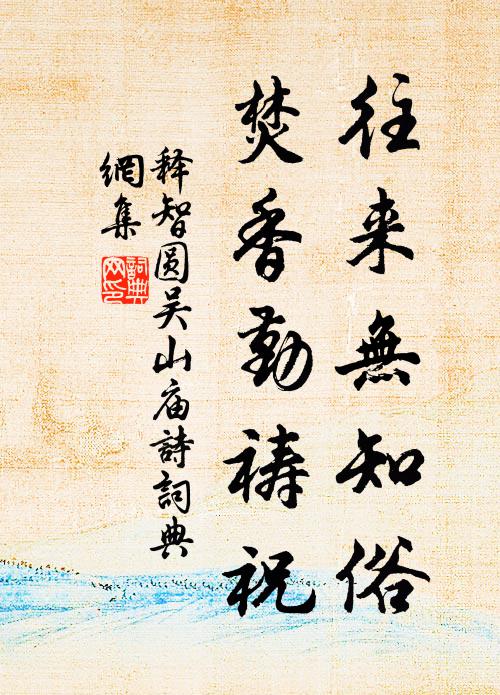 往来無知俗
焚香勤祷祝
释智圆吴山庙詩詞典
網集
詞典
网印